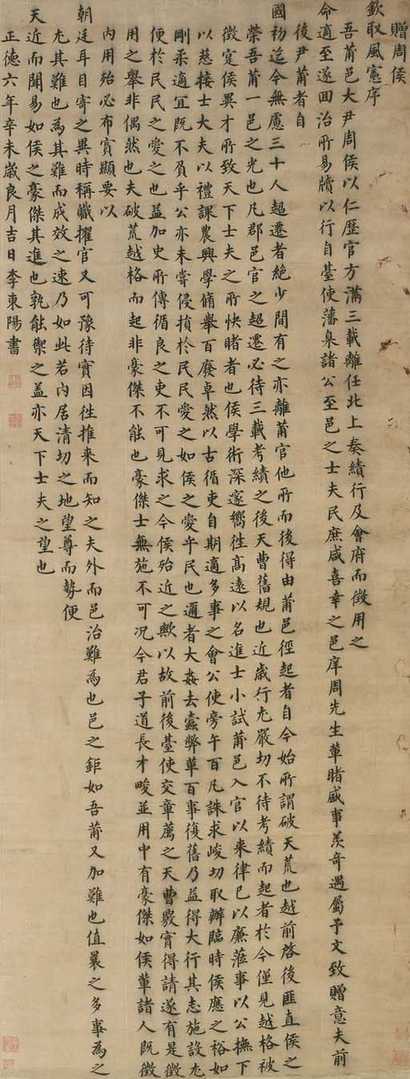 贈周侯
欽取風憲序
吾莆邑大尹周侯以仁歷官方滿三載離任北上奏績行及會府而徵用之
命適至遂回治所易牘以行自臺使藩臬諸公至邑之士夫民庶咸喜幸之邑庠周先生輩睹盛事羨奇遇屬予文致贈意夫前
後尹莆者自
國初迄今無慮三十人超遷者絶少間有之亦離莆官他所而後得由莆邑徑起者自今始所謂破天荒也越前啓後匪直侯之
榮吾莆一邑之光也凡郡邑官之超遷必待三載考績之後天曹舊規也近歲行尤嚴切不待考績而起者於今僅見越格被
徵寔侯異才所致天下士夫之所快睹者也侯學術深邃嚮往高遠以名進士小試莆邑入官以來律己以廉蒞事以公撫下
以慈接士大夫以禮課農興學脩舉百廢卓然以古循吏自期適多事之會公使旁午百凡誅求峻切取辦臨時侯應之裕如
剛柔適宜既不負乎公亦未嘗侵損於民民愛之如侯之愛乎民也邇者大姦去蠹弊革百事復舊乃益得大行其志施設尤
便於民民之愛之也益加史所傳循良之吏不可見求之今侯殆近之歟以故前後臺使交章薦之天曹覈實得請遂有是徵
用之舉非偶然也夫破荒越格而起非豪傑不能也豪傑士無施不可况今君子道長才畯並用中有豪傑如侯輩諸人既徵
内用殆必布寘顯要以
朝廷耳目寄之異時稱職擢官又可豫待實因往推來而知之夫外而邑治難為也邑之鉅如吾莆又加難也值曩之多事為之
尤其難也為其難而成效之速乃如此若内居清切之地望尊而勢便
天近而聞易如侯之豪傑其進也孰能禦之盖亦天下士夫之望也
正德六年辛未歲良月吉日李東陽書